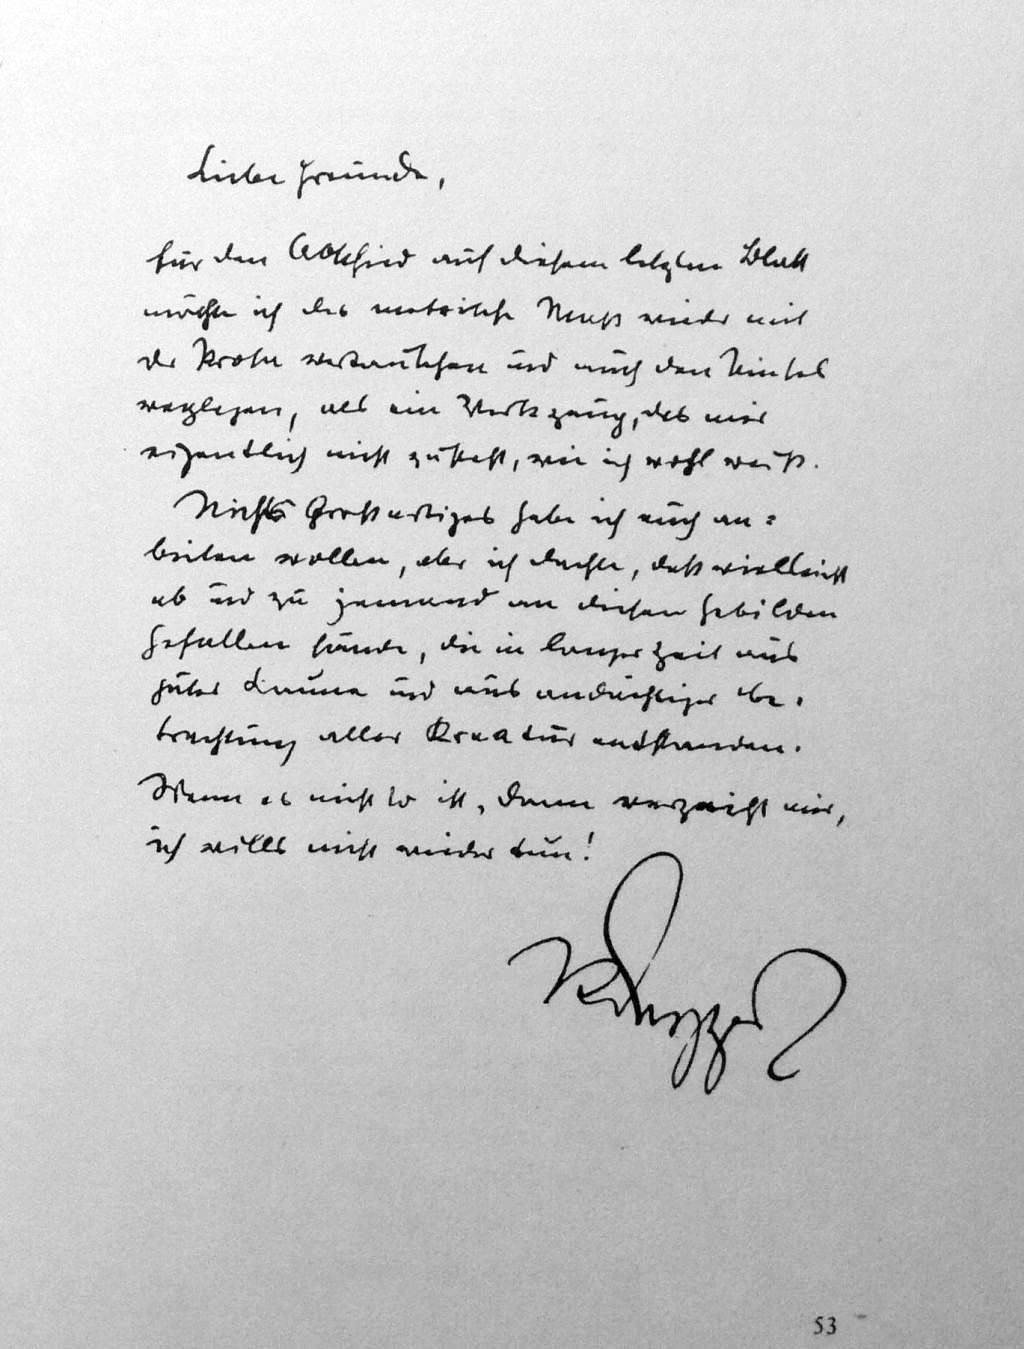 Liebe Freunde,
für den Abschied auf diesem letzten Blatt
möchte ich das metrische Mass wieder mit
der Prosa vertauschen und auch den Pinsel
weglegen, als ein Werkzeug, das mir
eigentlich nicht zusteht, wie ich wohl weiß.
Nichts Grossartiges habe ich euch an=
bieten wollen, aber ich dachte, dass vielleicht
ab und zu jemand an diesen Gebilden
Gefallen fände, die in langer Zeit aus
guter Laune und aus andächtiger Be-
trachtung aller Kreatur entstanden.
Wenn es nicht so ist, dann verzeiht mir,
ich wills nicht wieder tun!
53